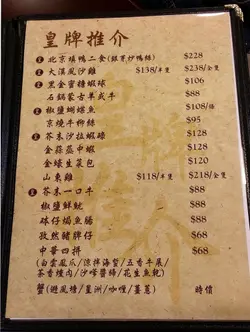 皇牌推介
北京填鴨二食(銀芽炒鴨絲) $228
大漠風沙雞 $138/半隻 $238/全隻
黑金蜜糖蝦球 $106
石鍋蒙古羊弍牛 $88
椒鹽蝴蝶魚 $108/條
京燒牛柳絲 $95
芥末沙拉蝦球 $128
金蒜蒸中蝦 $128
金球韭菜包 $120
山東雞 $118/半隻 $218/全隻
芥末一口牛 $128
椒鹽鮮魷 $88
砵仔焗魚腸 $88
孜然豬牌仔 $68
中華四拼 $68
(白雲鳳爪/涼拌海蜇/五香牛展/
茶香燻肉/沙嗲醬鴨/花生魚乾)
蟹(避風塘/星洲/咖喱/薑蔥) 時價